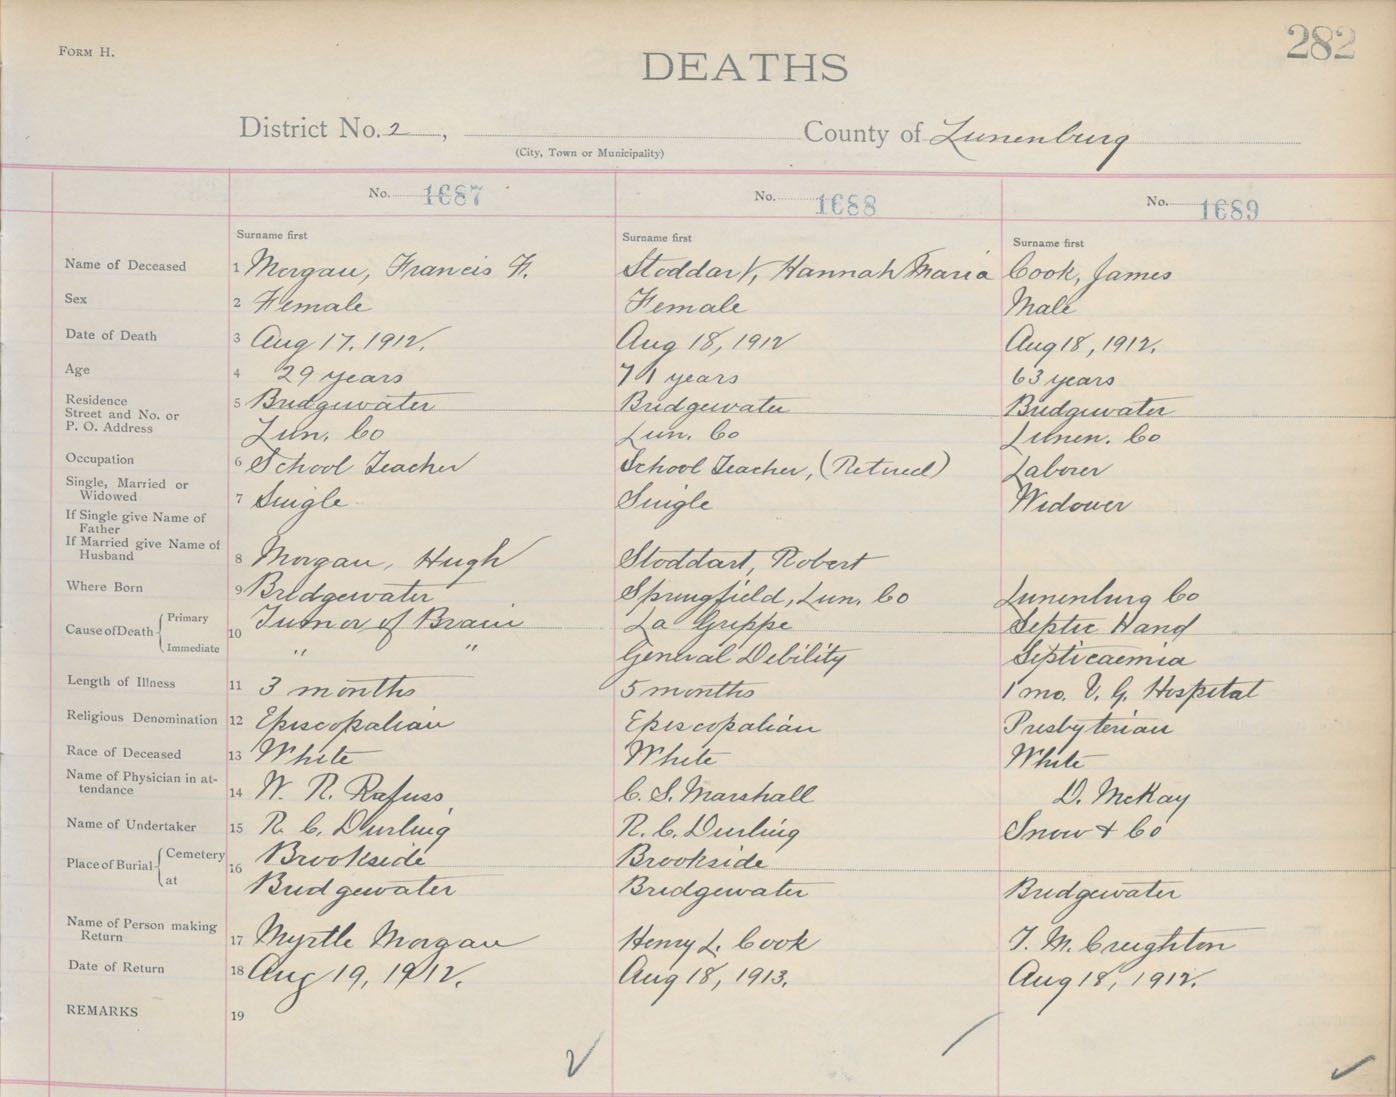 FORM H.
282
DEATHS
District No. 2, County of Lunenburg
(City, Town or Municipality)
No. 1687 No. 1688 No. 1689
Surname first Surname first Surname first
Name of Deceased 1 Morgan, Francis F. Stoddart, Hannah Maria Cook, James
Sex 2 Female Female Male
Date of Death 3 Aug 17, 1912. Aug 18, 1912 Aug 18, 1912.
Age 4 29 years 71 years 63 years
Residence 5 Bridgewater Bridgewater Bridgewater
Street and No. or
P. O. Address Lun. Co Lun. Co Lunen. Co
Occupation 6 School Teacher School Teacher, (Retired) Laborer
Single, Married or
Widowed 7 Single Single Widower
If Single give Name of
Father
If Married give Name of
Husband 8 Morgan, Hugh Stoddart, Robert
Where Born 9 Bridgewater Springfield, Lun. Co Lunenburg Co
Cause of Death Primary 10 Tumor of Brain La Grippe Septic Hand
Immediate " " General Debility Septicaemia
Length of Illness 11 3 months 5 months 1 mo. V. G. Hospital
Religious Denomination 12 Episcopalian Episcopalian Presbyterian
Race of Deceased 13 White White White
Name of Physician in at-
tendance 14 W. R. Rafuss C. S. Marshall D. McKay
Name of Undertaker 15 R. C. Durling R. C. Durling Snow & Co
Place of Burial Cemetery 16 Brookside Brookside
at Bridgewater Bridgewater Bridgewater
Name of Person making
Return 17 Myrtle Morgan Henry L. Cook T. M. Creighton
Date of Return 18 Aug 19, 1912. Aug 18, 1913. Aug 18, 1912.
REMARKS 19